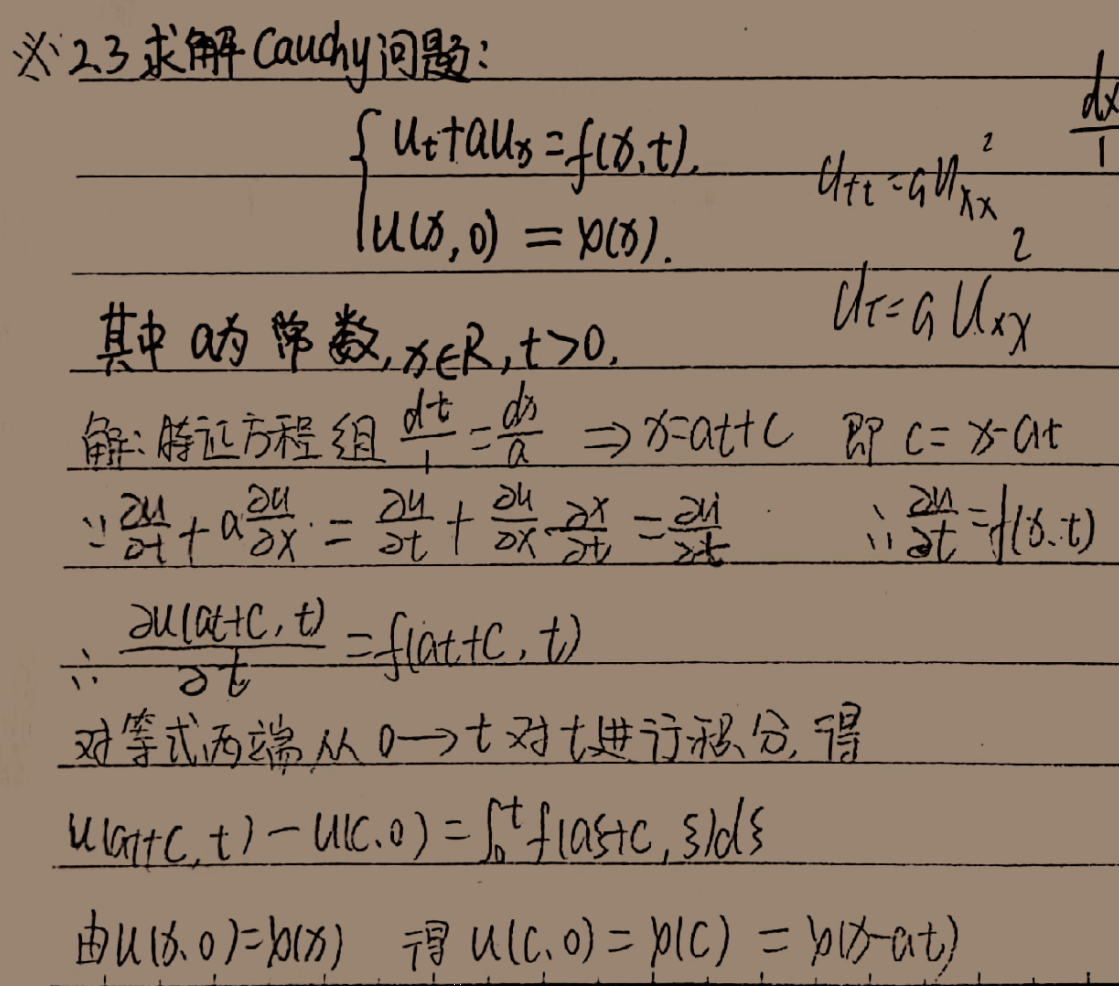 ※ 2.3 求解 Cauchy 问题:
{ u_t + a u_x = f(x, t).
u(x, 0) = φ(x).
dx/1
u_tt = a² u_xx
u_t = a² u_xx
其中 a为 常数, x∈R, t>0.
解: 特征方程组 dt/1 = dx/a ⇒ x=at+C 即 C = x-at
∵ ∂u/∂t + a ∂u/∂x = ∂u/∂t + ∂u/∂x · ∂x/∂t = ∂u/∂t ∴ ∂u/∂t = f(x, t)
∴ ∂u(at+C, t)/∂t = f(at+C, t)
对等式两端从 0→t 对 t 进行积分, 得
u(at+C, t) - u(C, 0) = ∫₀ᵗ f(aξ+C, ξ)dξ
由 u(x, 0)=φ(x) 得 u(C, 0) = φ(C) = φ(x-at)